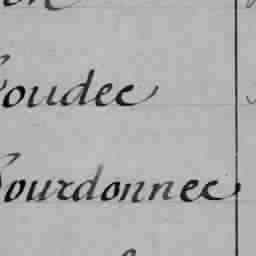 oudec
ourdonnec